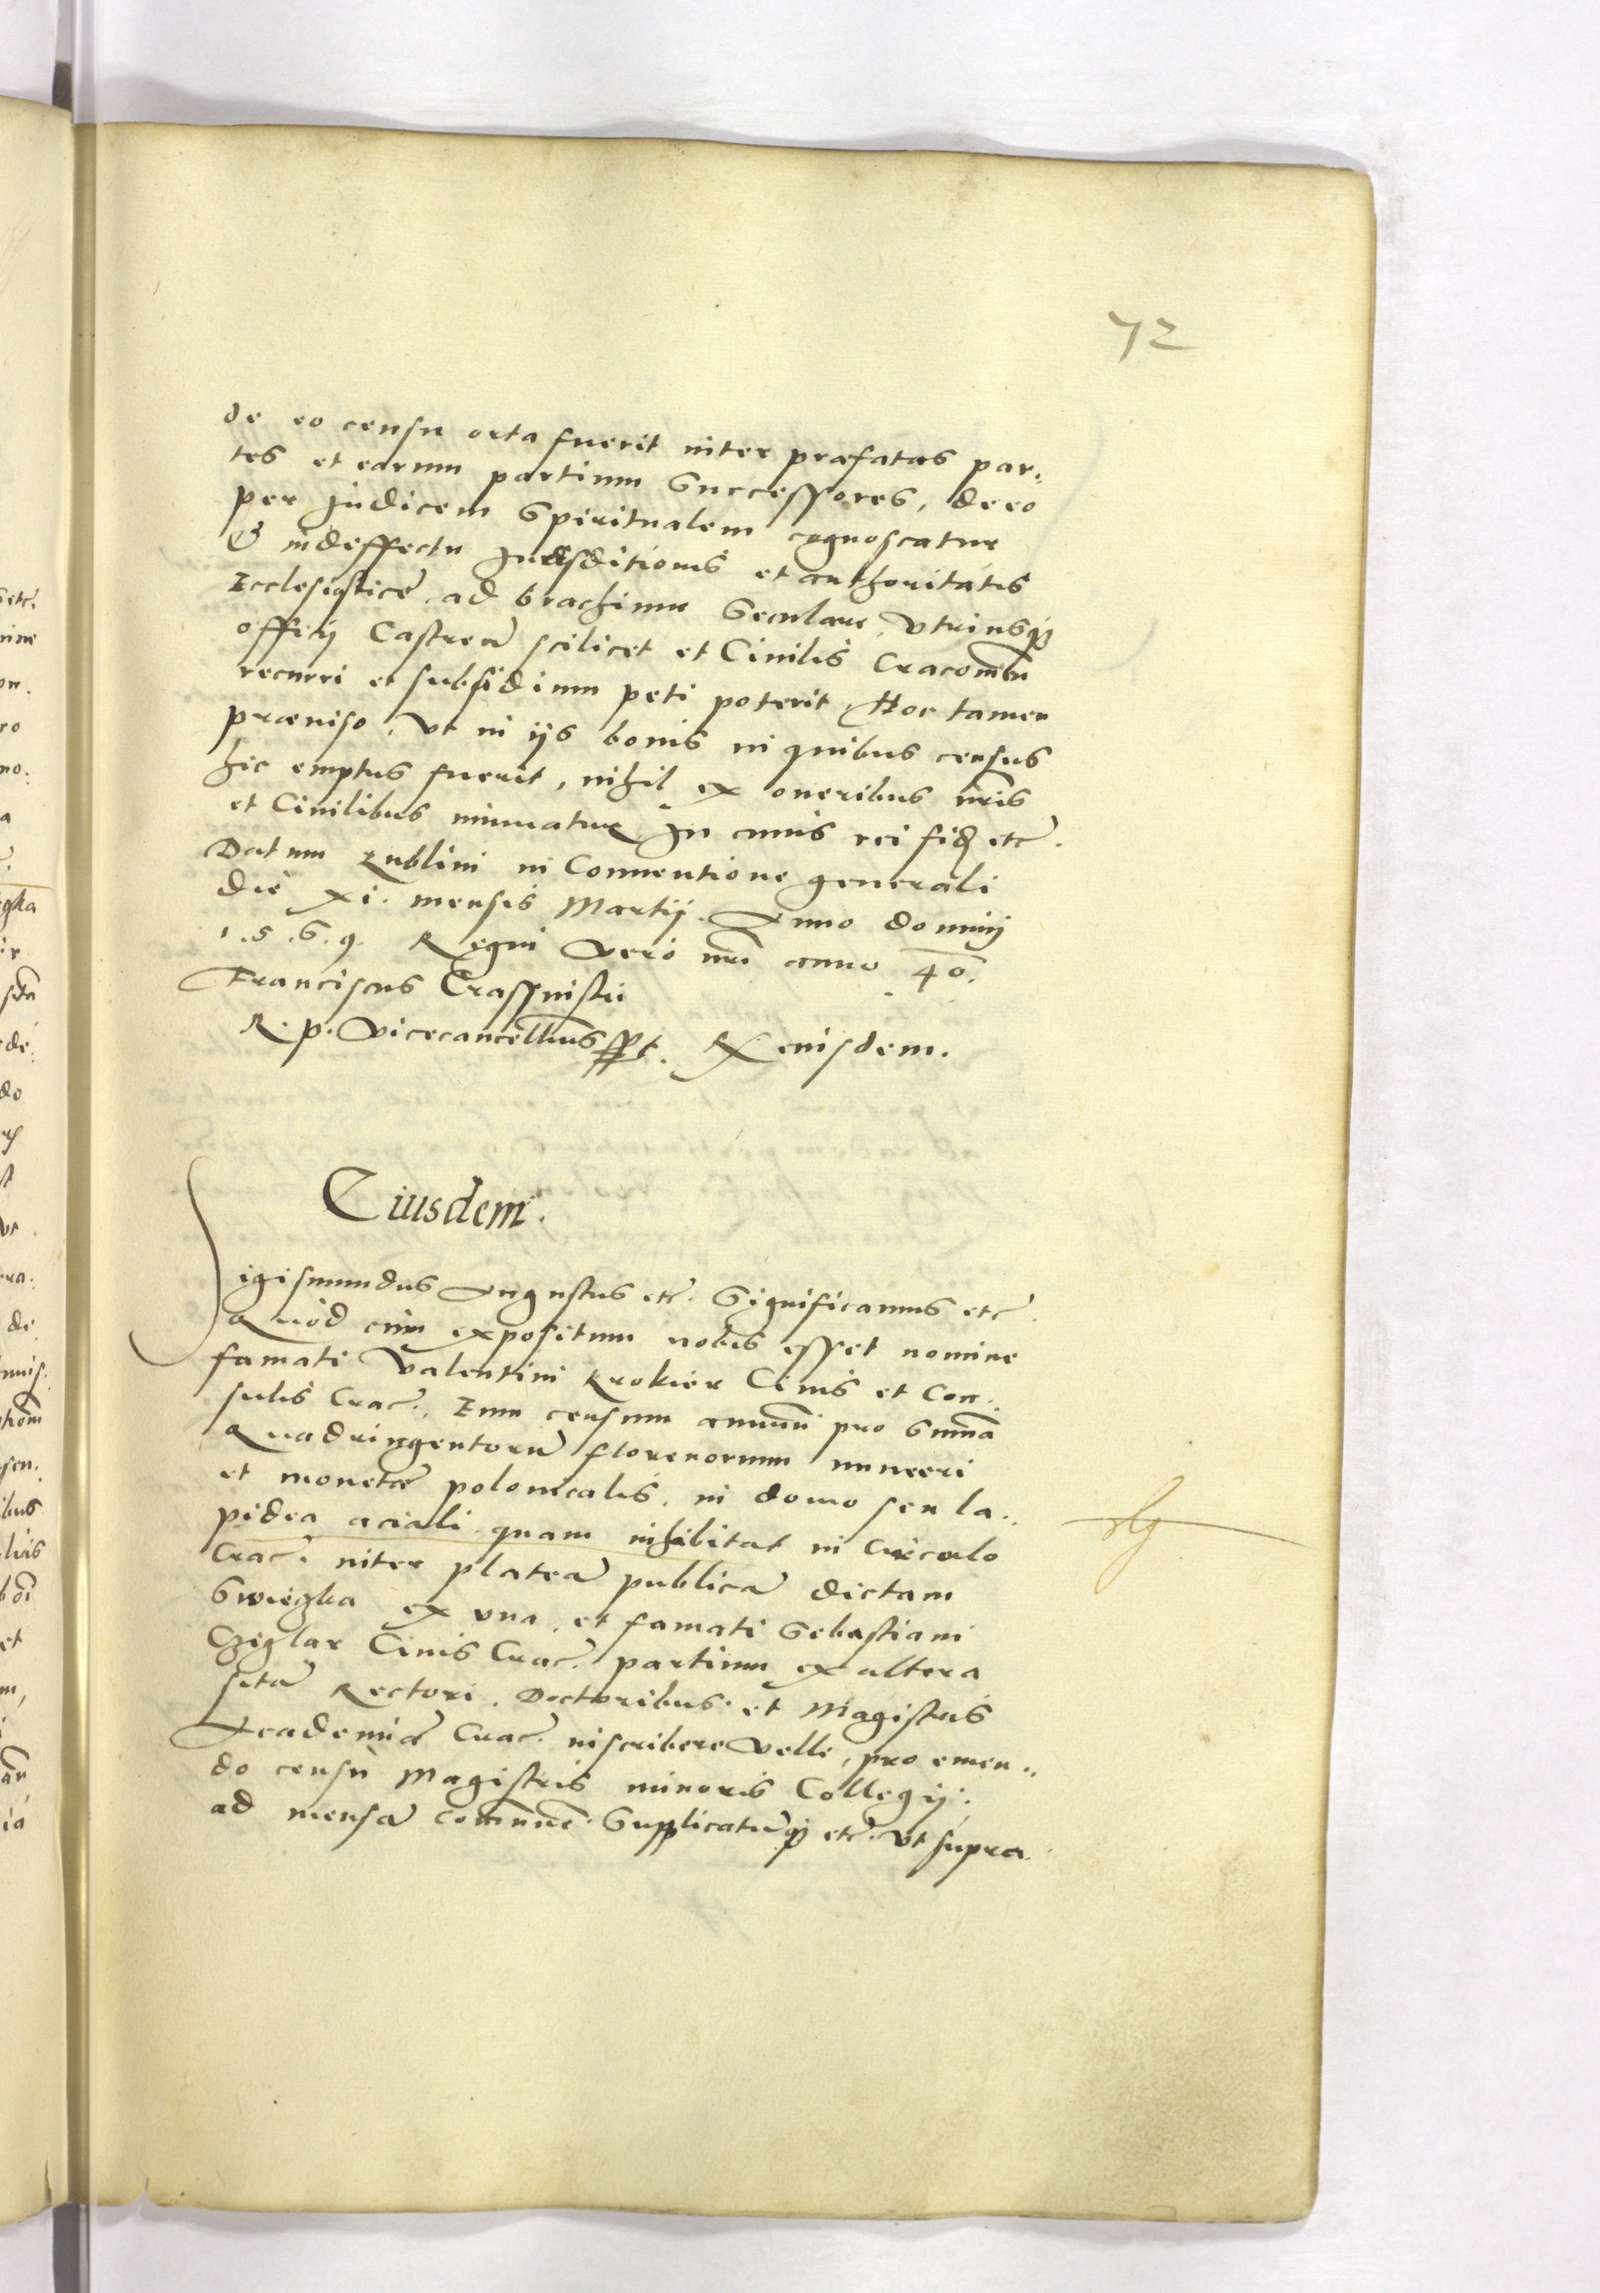 72
de eo censu orta fuerit inter præfatas par,,
tes et earum partium Successores, de eo
per Judicem Spiritualem cognoscatur
& in deffectu Jurisditionis et authoritatis
Ecclesiasticæ, ad brachium Seculare, utriusq3
officij Castren̄ scilicet et Ciuilis Cracouien̄
recurri et subsidium peti poterit, Hoc tamen
præuiso, Vt in ijs bonis in quibus census
hic emptus fuerit, nihil ex oneribus nr̄is
et Ciuilibus minuatur. In cuius rei fid etc̄.
Datum Lublini in Conuentione generali
die xi. mensis Martij. Anno dominij
1.5.6.9. Regni Vero nr̄i anno 40.
Franciscus Crassinskii
R. p. Vicecancellarius sspt. Ex eiusdem.
Eiusdem.
Sigismundus Augustus etc̄. Significamus etc̄.
Quod cum expositum nobis esset nomine
famati Valentini Krokier Ciuis et Con,,
sulis Crac̄., Eum censum annuū pro Sum̄a
Quadringentorū florenorum numeri
et monetæ polonicalis, in domo seu la,,
pidea aciali quam inhibitat in Circulo
Crac̄. inter plateā publicā dictam
Swiezka ex vna, et famati Sebastiani
Cziglar Ciuis Crac̄. partium ex altera
sitā Rectori, Doctoribus et Magistris
Academiæ Crac̄. inscribere velle, pro emen,,
do censu Magistris minoris Collegij,
ad mensā com̄unē. Supplicatūq3 etc̄. Vt supra.